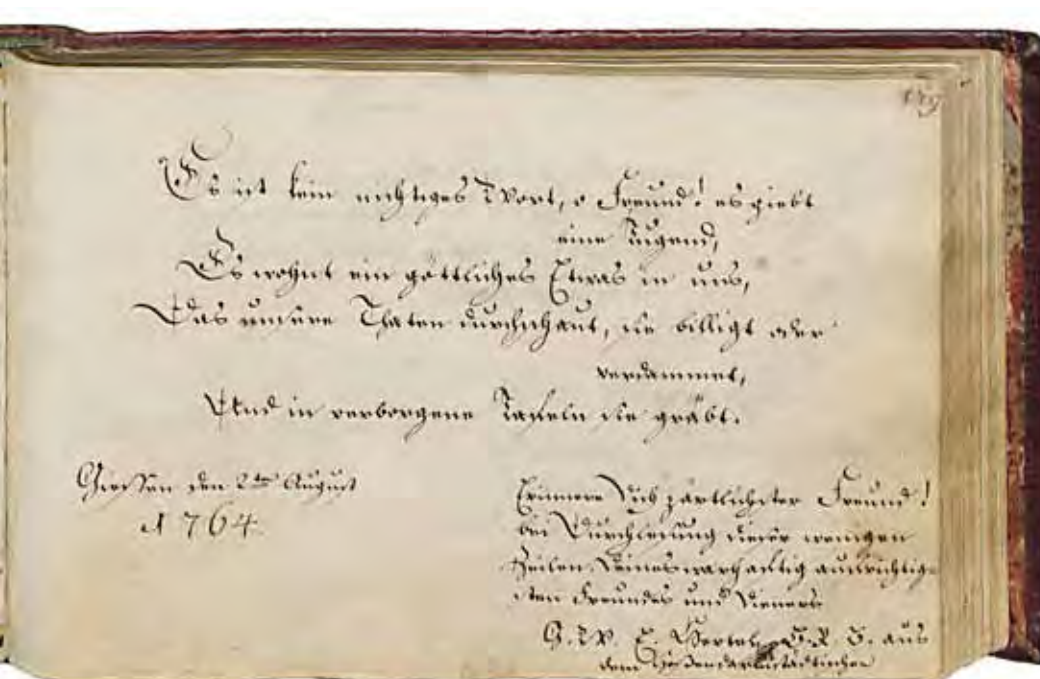 179
Es ist kein nichtiges Wort, o Freund! es giebt
eine Tugend,
Es wohnt ein göttliches Etwas in uns,
Das unsere Thaten durchschaut, sie billigt oder
verdammet,
Und in verborgene Tafeln sie gräbt.
Giessen den 2ten August
1764.
Erinnere Dich zärtlichster Freund!
bei Durchlesung dieser wenigen
Zeilen, Deines warhaftig aufrichtig-
sten Freundes und Dieners
G. W. C. Hertel aus
dem Hessendarmstädtischen